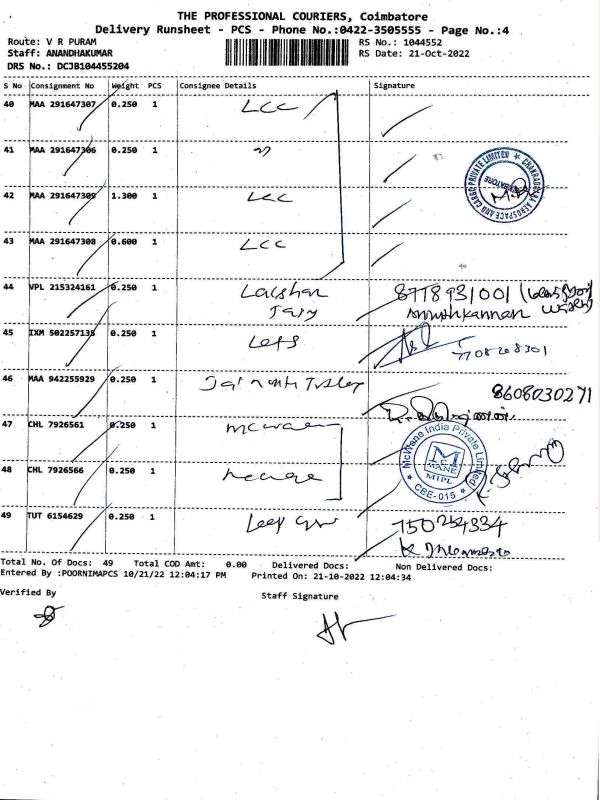 THE PROFESSIONAL COURIERS, Coimbatore
Delivery Runsheet - PCS - Phone No.:0422-3505555 - Page No.:4
Route: V R PURAM
RS No.: 1044552
Staff: ANANDHAKUMAR
RS Date: 21-Oct-2022
DRS No.: DCJB104455204
S No Consignment No Weight PCS Consignee Details Signature
40 MAA 291647307 0.250 1 LCC
41 MAA 291647306 0.250 1
42 MAA 291647309 1.300 1 LCC
43 MAA 291647308 0.600 1 LCC
44 VPL 215324161 0.250 1 8778931001
45 IXM 502257135 0.250 1 7708268301
46 MAA 942255929 0.250 1 8608030271
47 CHL 7926561 0.250 1
McWane India Private Limited
MCWANE
MIPL
* CBE-015 *
48 CHL 7926566 0.250 1
49 TUT 6154629 0.250 1
Total No. Of Docs: 49 Total COD Amt: 0.00 Delivered Docs: Non Delivered Docs:
Entered By :POORNIMAPCS 10/21/22 12:04:17 PM Printed On: 21-10-2022 12:04:34
Verified By
Staff Signature